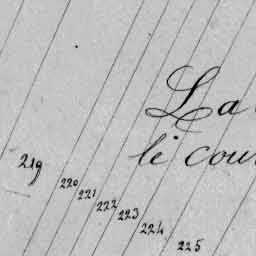 La
le cour
219
220
221
222
223
224
225